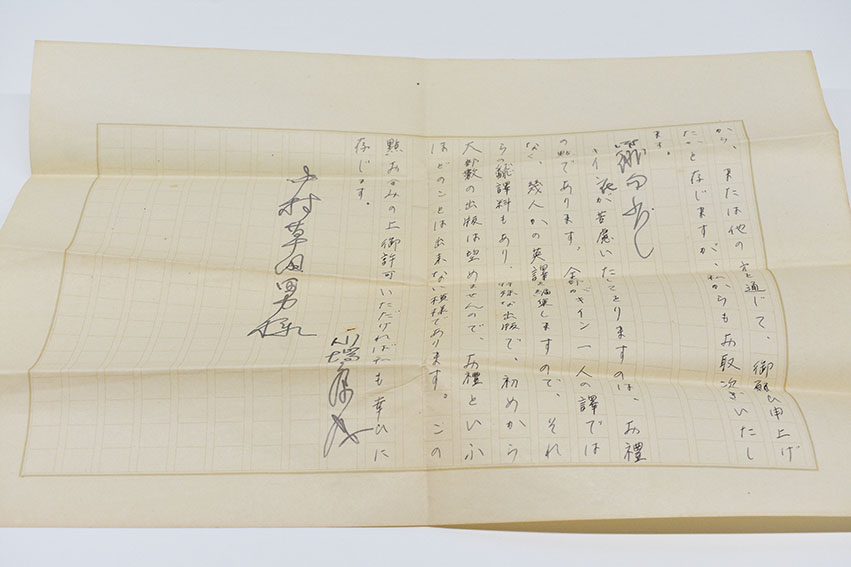 から、または他の方を通じて、御願ひ申上げ
たかと存じますが、私からもお取次ぎいたし
ます。
キイン君が苦慮いたしてをりますのは、お禮
の点であります。全部キイン一人の譯では
なく、幾人かの英譯を編集しますので、それ
らの飜譯料もあり、特殊な出版で、初めから
大部数の出版は望めませんので、お禮といふ
ほどのことは出来ない模様であります。この
點お含みの上御許可いただければ私も幸ひに
存じます。
川端康成
中村草田男様